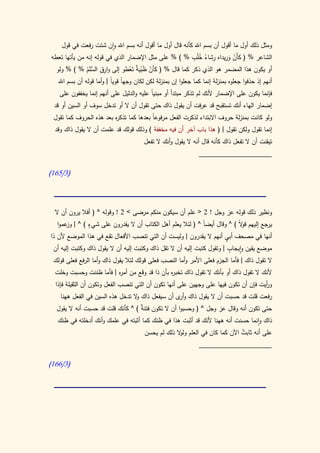 ومثل ذلك أول ما أقول أن بسم الله كأنه قال أول ما أقول أنه بسم الله وإن شئت رفعت في قول
الشاعر % ( كَأَنْ وَرِيداه رِشاءُ خُلُبِ % ) % على مثل الإضمار الذي في قوله إنه من يأتها تعطه
أو يكون هذا المضمر هو الذي ذكر كما قال % ( كَأَنْ ظَبْيَةٌ تَعْطو إلى وارِقِ السَّلَمْ % ) % ولو
أنهم إذ حذفوا جعلوه بمنزلة إنما كما جعلوا إن بمنزلة لكن لكان وجهاً قوياً | وأما قوله أن بسم الله
فإنما يكون على الإضمار لأنك لم تذكر مبتدأ أو مبنياً عليه والدليل على أنهم إنما يخففون على
إضمار الهاء أنك تستقبح قد عرفت أن يقول ذاك حتى تقول أن لا أو تدخل سوف أو السين أو قد
ولو كانت بمنزلة حروف الابتداء لذكرت الفعل مرفوعاً بعدها كما تذكره بعد هذه الحروف كما تقول
إنما تقول ولكن تقول | ( هذا باب آخر أن فيه مخففة ) وذلك قولك قد علمت أن لا يقول ذاك وقد
تيقنت أن لا تفعل ذاك كأنه قال أنه لا يقول وأنك لا تفعل
(165/3)
ونظير ذلك قوله عز وجل ! 2 < علم أن سيكون منكم مرضى > 2 ! وقوله ^ ( أفلاَ يرون أن لا
يرجع إليهم قولاً ) ^ وقال أيضاً ^ ( لئلا يعلم أهل الكتاب أن لا يقدرون على شيءٍ ) ^ | وزعموا
أنها في مصحف أبي أنهم لا يقدرون | وليست أن التي تنصب الأفعال تقع في هذا الموضع لأن ذا
موضع يقين وإيجاب | وتقول كتبت إليه أن لا تقل ذاك وكتبت إليه أن لا يقول ذاك وكتبت إليه أن
لا تقول ذاك | فأما الجزم فعلى الأمر وأما النصب فعلى قولك لئلا يقول ذاك وأما الرفع فعلى قولك
لأنك لا تقول ذاك أو بأنك لا تقول ذاك تخبره بأن ذا قد وقع من أمره | فأما ظننت وحسبت وخلت
ورأيت فإن أن تكون فيها على وجهين على أنها تكون أن التي تنصب الفعل وتكون أن الثقيلة فإذا
رفعت قلت قد حسبت أن لا يقول ذاك وأرى أن سيفعل ذاك ولا تدخل هذه السين في الفعل ههنا
حتى تكون أنه وقال عز وجل ^ ( وحسبوا أن لا تكون فتنةٌ ) ^ كأنك قلت قد حسبت أنه لا يقول
ذاك وإنما حسنت أنه ههنا لأنك قد أثبت هذا في ظنك كما أثبته في علمك وأنك أدخلته في ظنك
على أنه ثابتٌ الآن كما كان في العلم ولولا ذلك لم يحسن
(166/3)